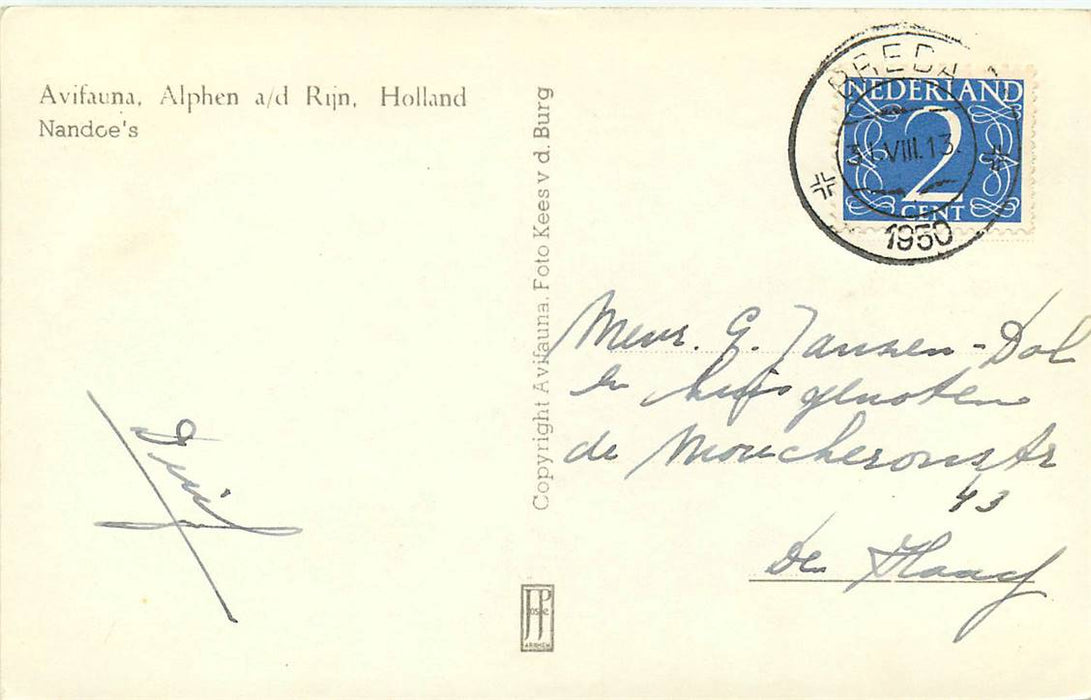 Avifauna, Alphen a/d Rijn, Holland
Nandoe's
Copyright Avifauna. Foto Kees v d. Burg
BREDA
31.VIII.13.
1950
NEDERLAND
2
CENT
Mevr. G. Jansen-Dol
en huisgenoten
de Moucheronstr
43
Den Haag
JP
ARNHEM